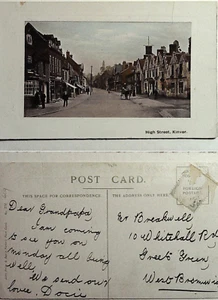 High Street, Kinver
POST CARD.
THIS SPACE FOR CORRESPONDENCE.
THE ADDRESS ONLY TO BE WRITTEN HERE.
Dear Grandpapa
I am coming
to see you on
monday all being
well.
We send our
love. Docie
Er Breakwell
10 Whitehall Rd
Greets Green
West Bromwich